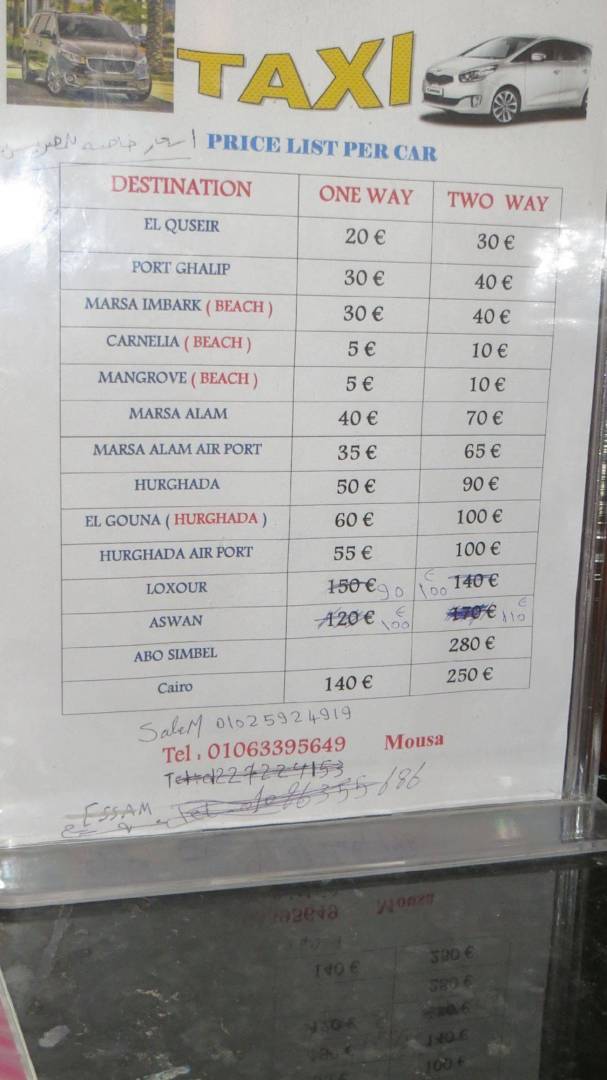 TAXI
اسعار خاصة للمصريين
PRICE LIST PER CAR
DESTINATION ONE WAY TWO WAY
EL QUSEIR 20 € 30 €
PORT GHALIP 30 € 40 €
MARSA IMBARK ( BEACH ) 30 € 40 €
CARNELIA ( BEACH ) 5 € 10 €
MANGROVE ( BEACH ) 5 € 10 €
MARSA ALAM 40 € 70 €
MARSA ALAM AIR PORT 35 € 65 €
HURGHADA 50 € 90 €
EL GOUNA ( HURGHADA ) 60 € 100 €
HURGHADA AIR PORT 55 € 100 €
LOXOUR 150 € 90 € ١٥٥ 140 €
ASWAN 120 € € ١٥٥ 170 € € ١١٥
ABO SIMBEL 280 €
Cairo 140 € 250 €
SaleM 01025924919
Tel . 01063395649 Mousa
ESSAM